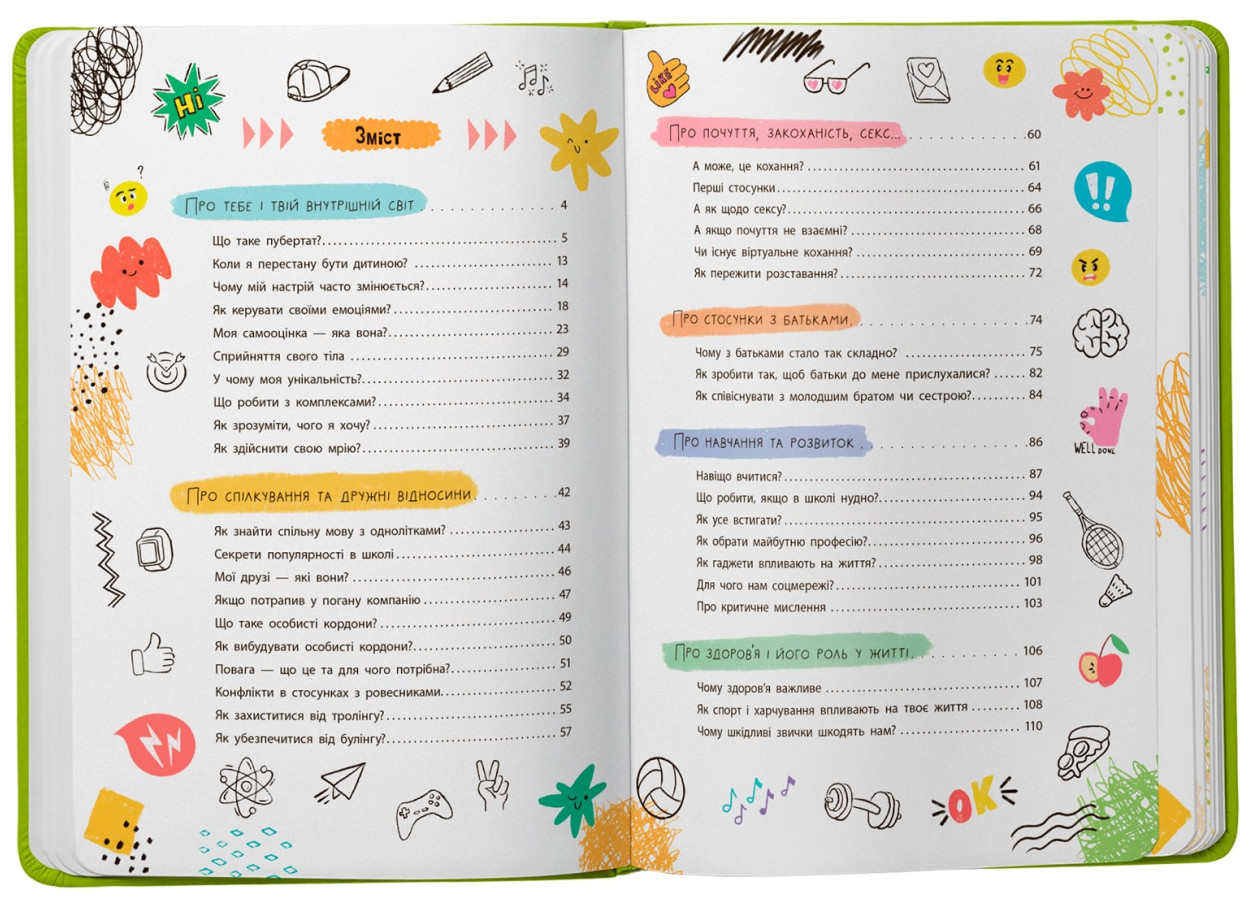 Hi
Зміст
Про тебе і твій внутрішній світ . . . . . . . . . . 4
Що таке пубертат? 5
Коли я перестану бути дитиною? 13
Чому мій настрій часто змінюється? 14
Як керувати своїми емоціями? 18
Моя самооцінка — яка вона? 23
Сприйняття свого тіла 29
У чому моя унікальність? 32
Що робити з комплексами? 34
Як зрозуміти, чого я хочу? 37
Як здійснити свою мрію? 39
Про спілкування та дружні відносини 42
Як знайти спільну мову з однолітками? 43
Секрети популярності в школі 44
Мої друзі — які вони? 46
Якщо потрапив у погану компанію 47
Що таке особисті кордони? 49
Як вибудувати особисті кордони? 50
Повага — що це та для чого потрібна? 51
Конфлікти в стосунках з ровесниками 52
Як захиститися від тролінгу? 55
Як убезпечитися від булінгу? 57
LIKE
Про почуття, закоханість, секс... 60
А може, це кохання? 61
Перші стосунки 64
А як щодо сексу? 66
А якщо почуття не взаємні? 68
Чи існує віртуальне кохання? 69
Як пережити розставання? 72
!!
Про стосунки з батьками 74
Чому з батьками стало так складно? 75
Як зробити так, щоб батьки до мене прислухалися? 82
Як співіснувати з молодшим братом чи сестрою? 84
WELL DONE
Про навчання та розвиток 86
Навіщо вчитися? 87
Що робити, якщо в школі нудно? 94
Як усе встигати? 95
Як обрати майбутню професію? 96
Як гаджети впливають на життя? 98
Для чого нам соцмережі? 101
Про критичне мислення 103
Про здоров'я і його роль у житті 106
Чому здоров'я важливе 107
Як спорт і харчування впливають на твоє життя 108
Чому шкідливі звички шкодять нам? 110
OK